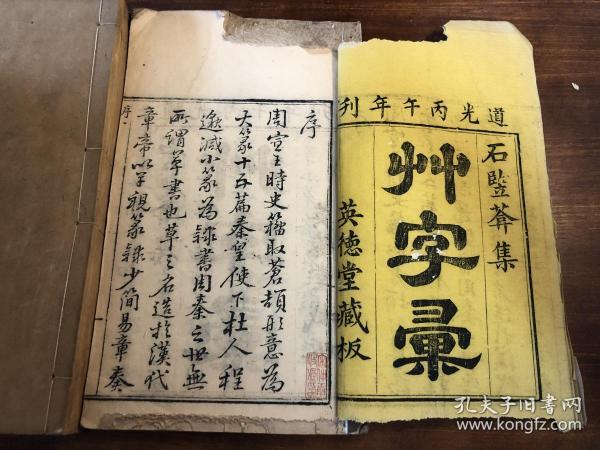 道光丙午年刊
石竪菴集
艸字彙
英德堂藏板
序
周宣王時史籒取蒼頡形意為
大篆十五篇秦皇使下杜人程
邈减小篆為隸書周秦之世無
所謂草書也草之名造於漢代
章帝以羊視篆隸少簡易章奏
序一
孔夫子旧書网
www.kongfz.com